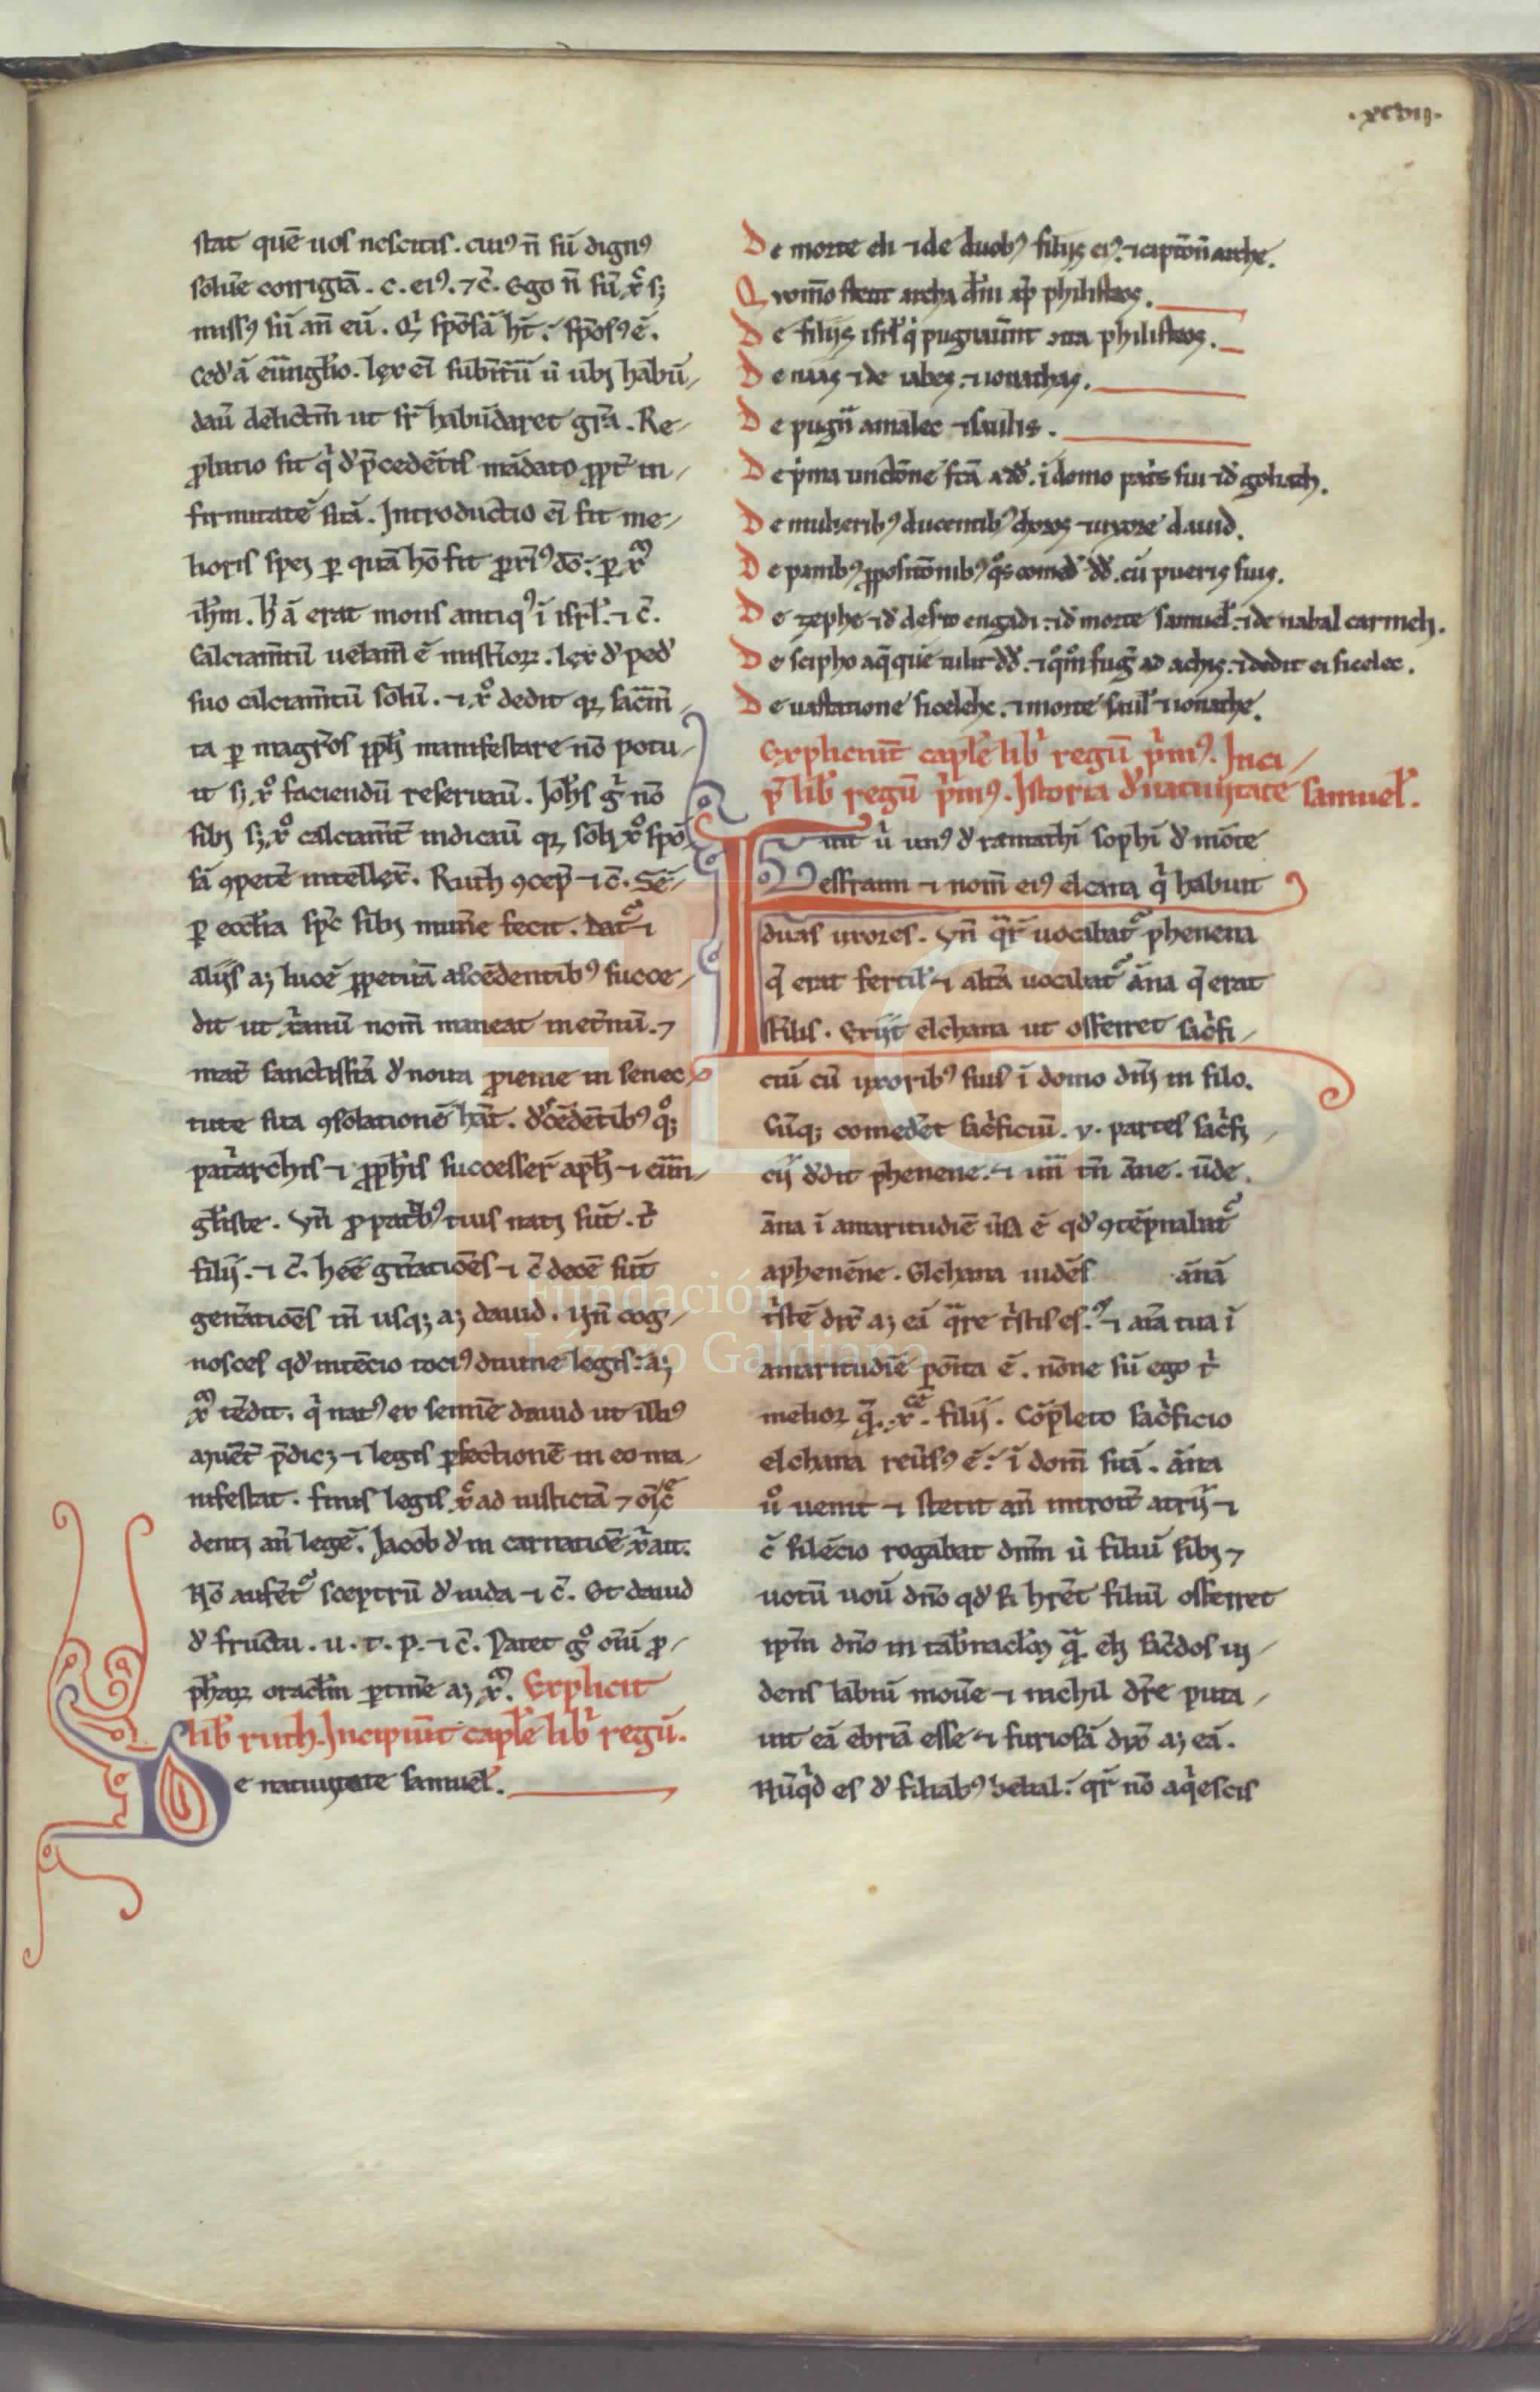 .xcviij.
stat quē uos nescitis. cuiꝰ n̄ sū dignꝰ
soluē corrigiā. c. eiꝰ. ⁊c̄. Ego n̄ sū xp̄c sꝫ
missꝰ sū an̄ eū. Qͥ spōsā ht̄. spōsꝰ ē.
lex eī subītū ů ubꝫ habū/
daū delictm̄ ut sr̄ habūdaret grā. Re/
ꝓbatio fit qͥ dͤ p̄cedētis mādato ꝓpt̄ in/
firmitatē suā. Introductio eī fit me/
lioris spei ꝑ quā hō fit ꝓxīꝰ dō. ꝑ xp̄m
ih̄m. h̄ ā erat mons antiqꝰ ī isrl̄. ⁊ c̄.
Calciam̄tū uelam̄ ē mistīoꝝ. lex dͤ pedͤ
suo calciam̄tū soluͭ. ⁊ xͦ dedit qꝫ sac̄m̄
ta ꝑ magr̄os ꝓph̄ manifestare nō potu/
it sꝫ xͦ faciendū reseruaū. Joh̄s gͥ nō
sibꝫ sꝫ xͦ calciam̄t̄ indicaū qꝫ soli xͦ spō
sā ꝯpetē intellex̄. Ruth ꝯcep̄ ⁊ c̄. Sē/
ꝑ eccl̄ia sp̄c sibꝫ mūne fecit. Dat᷑ ⁊
alijs aꝫ lucē ꝑpetuā ascēdentibꝰ succe/
dit ut xͥanū nom̄ maneat inet̄nū. ⁊
mat̄ sanctissīa dͤ noua ꝓienie in senec
tute sua ꝯsolationē hāt. dͤcēdētibꝰ qͦꝫ
patͥarchis ⁊ ꝓph̄is successer̄ apl̄i ⁊ euan/
gl̄iste. Vn̄ ꝓ patͥbꝰ tuis nati sūt. tͥ
filij. ⁊ c̄. hee gn̄atiōes ⁊ c̄ decē sūt
gen̄atiōes tn̄ usqꝫ aꝫ dauid. Vn̄ cog/
nosces qdͤ intēcio tociꝰ diuine legis aꝫ
xp̄m tēdit. qͥ natꝰ ex semīe dauid ut illiꝰ
aduēt̄ p̄dicꝫ ⁊ legis ꝑfectionē in eo ma/
nifestat. finis legis xp̄c ad iusticiā ⁊ oī c̄
denti an̄ legē. Jacob dͤ in carnatiōe xͥ ait.
Nō aufēt᷑ sceptrū dͤ iuda ⁊ c̄. Et dauid
dͤ fructu. u. t. p. ⁊ c̄. Patet gͦ oīū ꝓ/
ph̄aꝝ oracl̄m ꝑtinē aꝫ xp̄m. Explicit
lib̄ ruth. Incipiūt capl̄e lib̄ͥ regū.
De natiuitate samuel̄.
De morte eli ⁊ de duobꝰ filijs eiꝰ. ⁊ captōn̄ arche.
Qvom̄o stetit archa dn̄i ap̄ philisteos.
De filijs isrl̄ qͥ pugnauūnt ꝯtra philisteos.
De naas ⁊ de iabes. ⁊ ionathas.
De pugna amalec ⁊ saulis.
De pͥma unctōne fc̄ā a dd̄. ī domo patͥs sui ⁊ dͤ goliath.
De mulieribꝰ ducentibꝰ choros ⁊ uxore dauid.
De panibꝰ ꝓpositōnibꝰ qͦs comedͭ dd̄. cū pueris suis.
De zephe ⁊ dͤ des̄to engadi. ⁊ dͤ morte samuel̄. ⁊ de nabal carmeli.
De scipho aq̄ quē tulit dd̄. ⁊ qͦm̄ fuḡ ad achis. ⁊ dedit ei sicelec.
De uastatione sicelehc. ⁊ morte saul̄ ⁊ ionathe.
Expliciūt capl̄e lib̄ͥ regū pͥmꝰ. Inci/
p̄ lib̄ regū pͥmꝰ. Istoria dͤ natiuitate samuel̄.
Fuit uͥ unꝰ dͤ ramathī sophī dͤ mōte
effraim ⁊ nom̄ eiꝰ elcana qͥ habuit
duas uxores. Vn̄ qᷓr̄ uocabat᷑ phenena
q̄ erat fertil̄ ⁊ altā uocabat᷑ āna q̄ erat
st̄ilis. Exijt elchana ut offerret sacͥfi/
ciū cū uxoribꝰ suis ī domo dn̄i in silo.
Cūqꝫ comedēt sacͥficiū. v. partes sacͥfi/
cij dͤdit phenene. ⁊ unā tn̄ āne. ūde
āna ī amaritudīe uͥsa ē qdͤ ꝯtēpnabat᷑
aphenēne. Elchana uidēs ānā
tͥstē dix̄ aꝫ eā qᷓre tͥstis es. ⁊ aīa tua ī
amaritudīe poīta ē. nōne sū ego tͥ
melior qᷓ .x. filij. Cōpleto sacͥficio
elchana reuͥsꝰ ē. ī domū suā. āna
uͦ uenit ⁊ stetit an̄ introit̄ atrij ⁊
c̄ silēcio rogabat dnm̄ ů filiū sibꝫ ⁊
uotū uouͭ dn̄o qdͤ si hr̄et filiū offerret
ip̄m dn̄o in tab̄nacl̄o qᷓ eli sac̄dos ui/
dens labiū mouē ⁊ nichil dr̄e puta/
uit eā ebriā esse ⁊ furiosā dix̄ aꝫ eā.
Nūqͥd es dͤ filiabꝰ belial. qr̄ nō aqͥescis
Fundación
Lázaro Galdiano